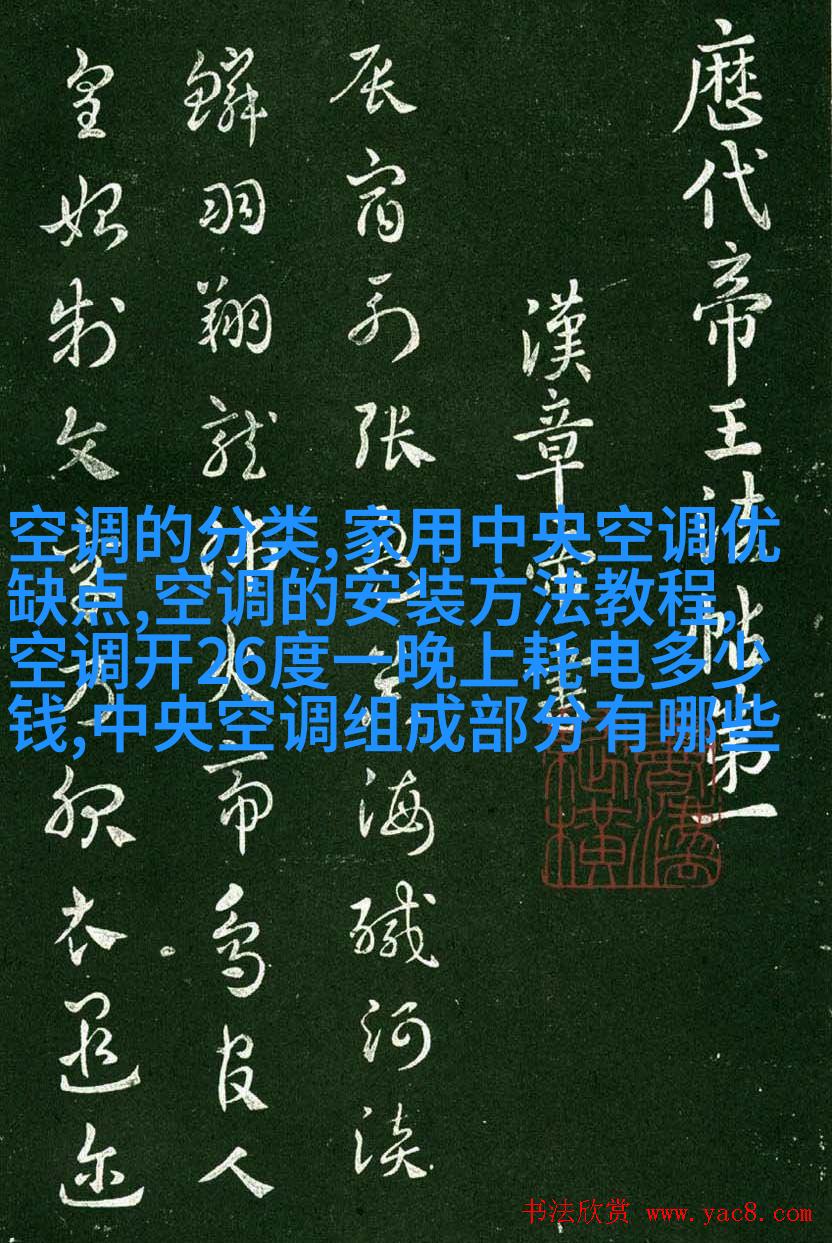 歷代帝王法帖第一
漢章帝書
辰宿列張海醎河淡
鱗羽翔龍師火帝鳥官人
皇始制文字乃服衣遐迩
空调的分类,家用中央空调优
缺点,空调的安装方法教程,
空调开26度一晚上耗电多少
钱,中央空调组成部分有哪些
书法欣赏 www.yac8.com